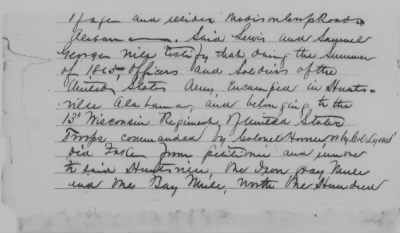 of age and resides Madison X Roads
Alabama. Said Lewis and Samuel
George will testify that during the Summer
of 1865, Officers and Soldiers of the
United States Army, encamped in Hunts-
ville Alabama, and belonging to the
13th Wisconsin Regiment of United States
Troops commanded by Colonel
did Taken from petitioner and
to said Huntsville, One Iron gray Mule
and One Bay Mule, worth One Hundred